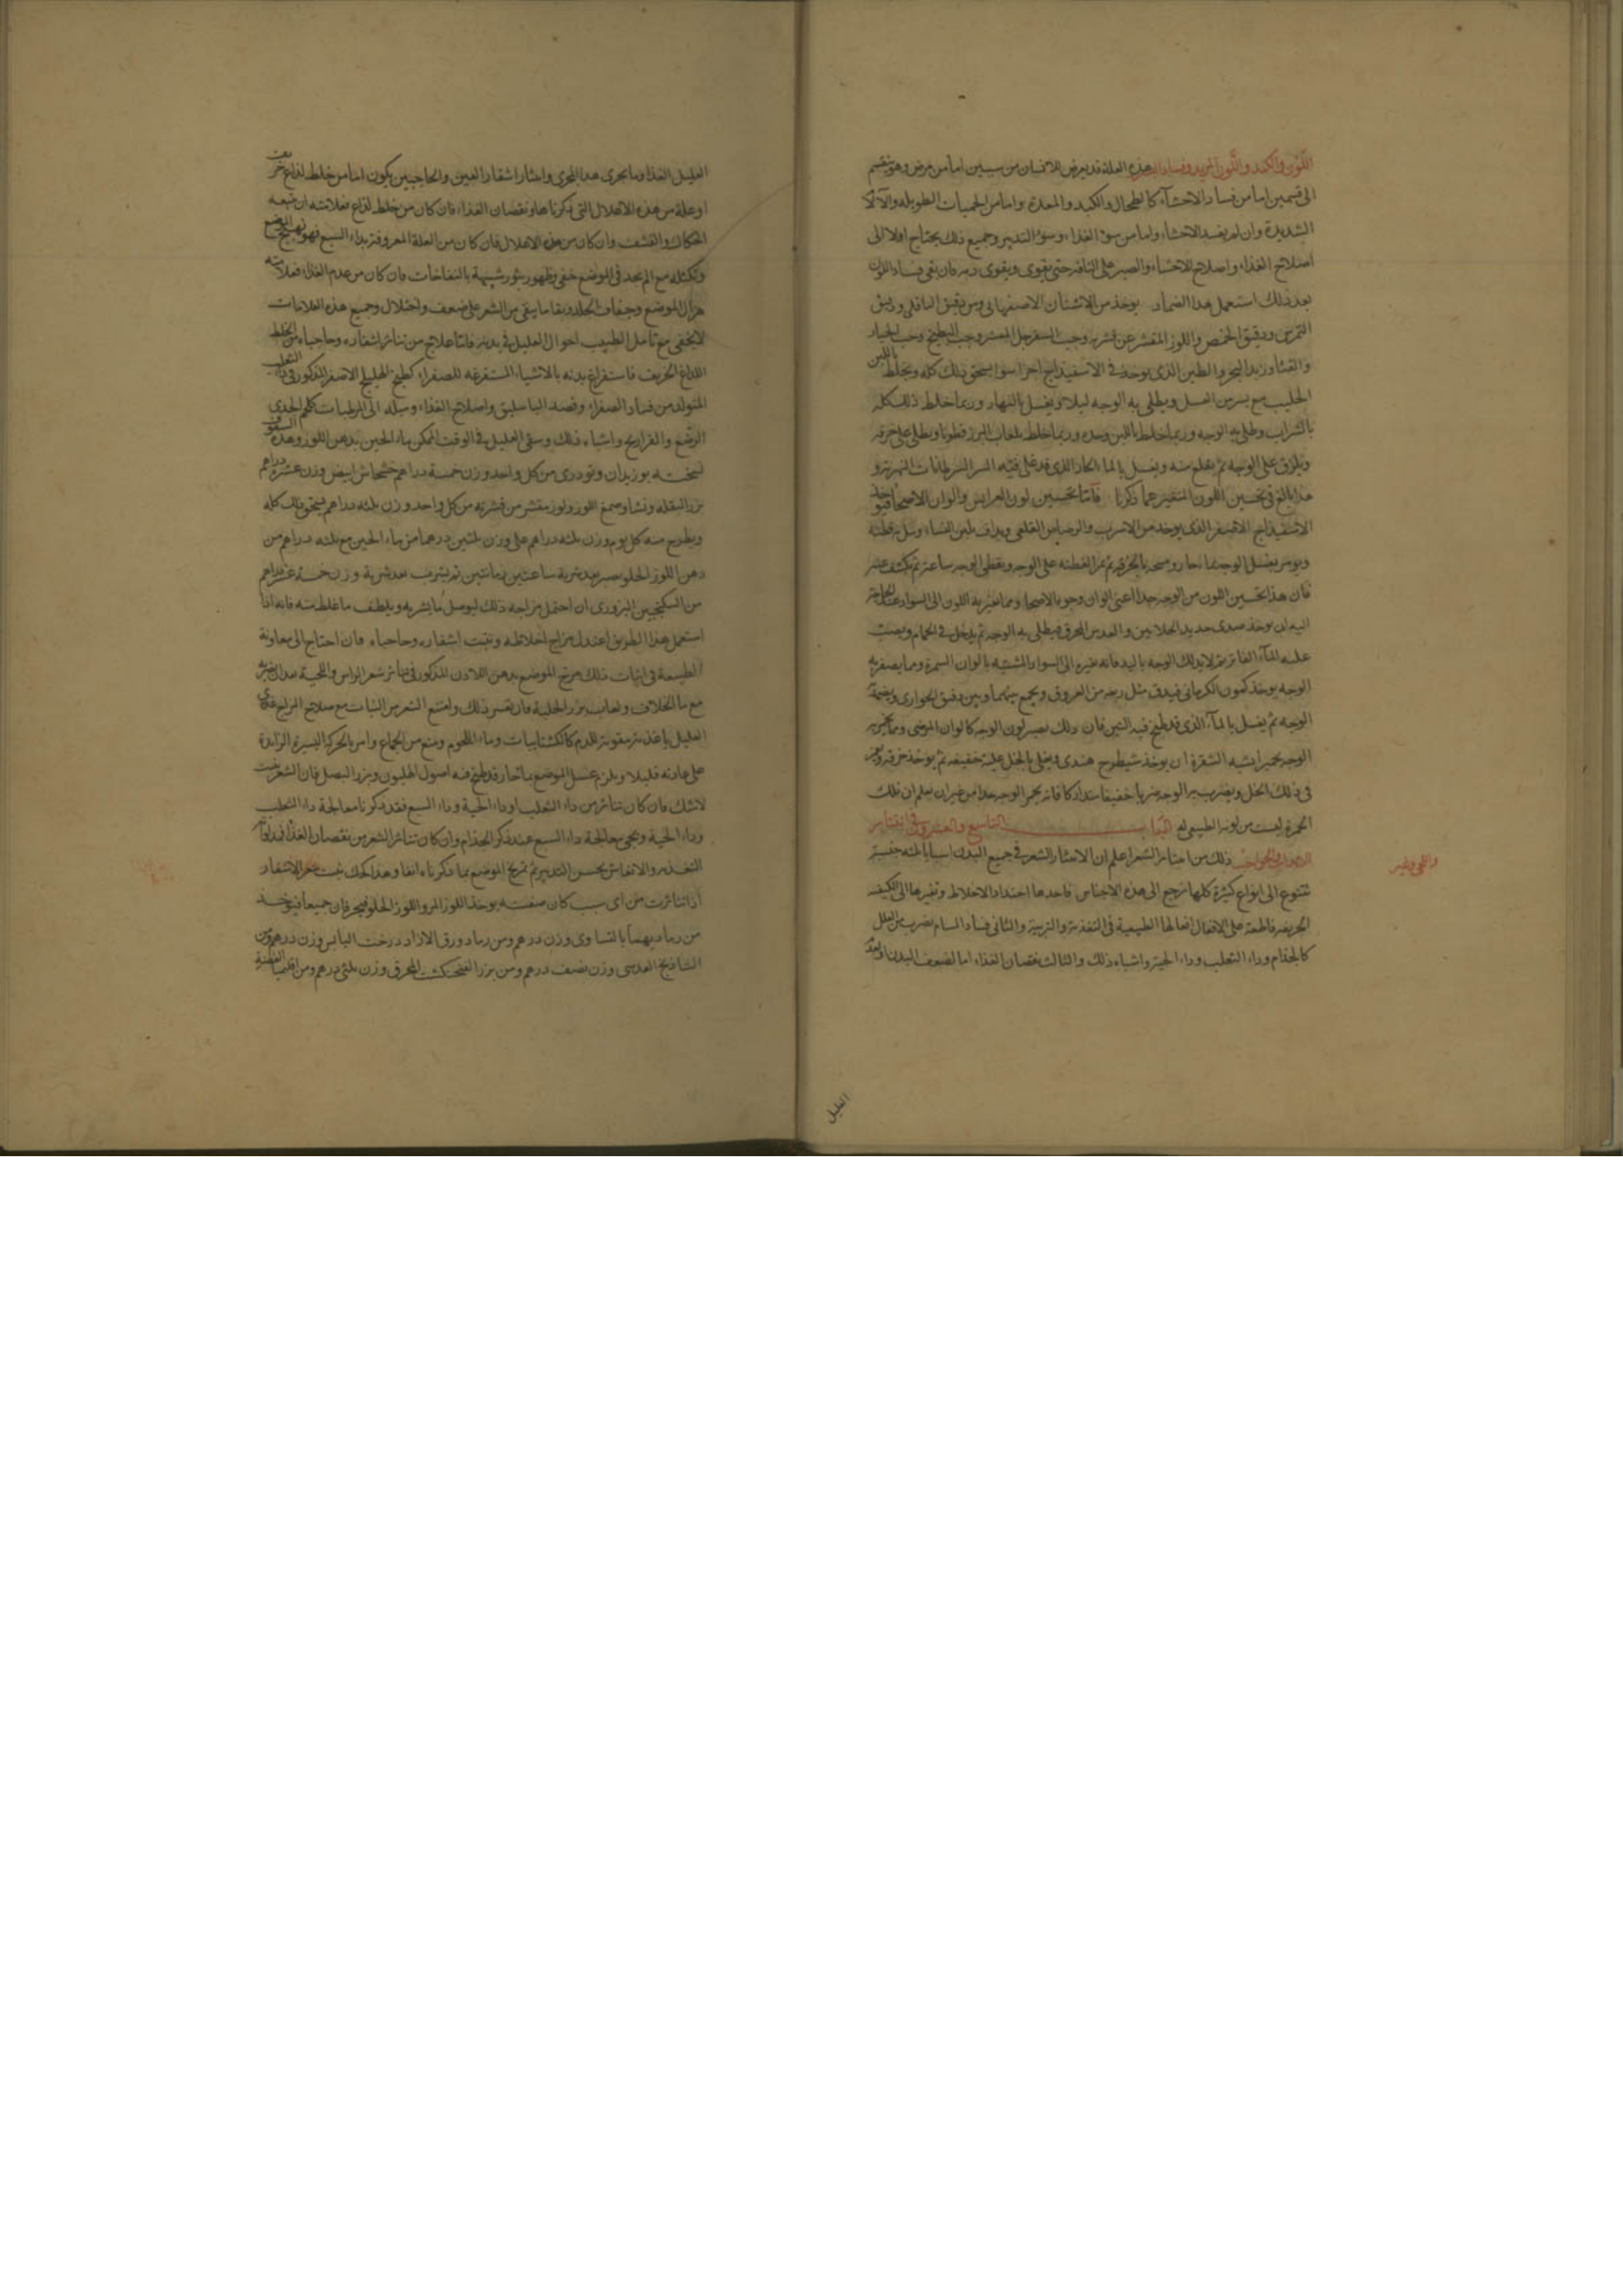 اللون والكمد واللون المربد وفساد اللون هذه العلة قد يعرض للانسان من سببين اما من مرض وهو ينقسم
الى قسمين اما من فساد الاحشاء كالطحال والكبد والمعدة واما من الحميات الطويله والآلام
الشديدة وان لم يفسد الاحشاء واما من سوء الغذاء وسوء التدبير وجميع ذلك يحتاج اولا الى
اصلاح الغذاء واصلاح الاحشاء والصبر على الناقه حتى يقوى ويقوى دمه فان بقى فساد اللون
بعد ذلك استعمل هذا الضماد يوخذ من الاشنان الاصفهانى ومن دقيق الباقلى ودقيق
الترمس ودقيق الحمص واللوز المقشر عن قشريه وحب السفرجل المقشر وحب البطيخ وحب الخيار
والقثاء وزبد البحر والطين الذى يوخذ فى الاسفيداج اجزا سوا يسحق ذلك كله ويخلط باللبن
الحليب مع يسير من العسل ويطلى به الوجه ليلا ويغسل بالنهار وربما خلط ذلك كله
بالشراب وطلى به الوجه وربما خلط باللبن وحده وربما خلط بلعاب البزرقطونا ويطلى على خرقه
ويلزق على الوجه ثم يقلع منه ويغسل بالماء الحار الذى قد غلى فيه السرطانات النهريه و
هذا بالغ فى تحسين اللون المتغير عما ذكرنا فاما تحسين لون العرايس والوان الاصحا فيوخذ
الاسفيداج الاصفر الذى يوخذ من الاسرب والرصاص القلعى ويداف بلبن النساء وتبل به قطنة
ويومر بغسل الوجه بماء حار ومسحه بالخرقه ثم تمر القطنه على الوجه ويغطى الوجه ساعة ثم يكشف عنه
فان هذا تحسين اللون من الوجه جدا اعنى الوان وجوه الاصحا ومما يغير به اللون الى السواد عند الحاجة
اليه ان يوخذ صدى حديد الجلابين والعدس المحرق فيطلى به الوجه ثم يدخل فى الحمام ويصب
عليه الماء الفاتر ثم لا يدلك الوجه باليد فانه يغيره الى السواد المشبه بالوان السمرة ومما يصفر به
الوجه يوخذ كمون الكرمانى فيدق مثل ربعه من العروق ويجمع بينهما وبين دقيق الحوارى ويضمد
الوجه ثم يغسل بالماء الذى قد طبخ فيه التين فان ذلك يصير لون الوجه كالوان المرضى ومما يحمر به
الوجه تحميرا يشبه الشقرة ان يوخذ شيطرج هندى ويغلى بالخل غلية خفيفه ثم يوخذ خرقه ويغمز
فى ذلك الخل ويضرب به الوجه ضربا خفيفا متداركا فانه يحمر الوجه جدا من غير ان يعلم ان تلك
الحمرة ليست من لونه الطبيعى له الباب التاسع والعشرون فى انتثار
الاهداب والحواجب ذلك من اجناس الشعر اعلم ان لانتثار الشعر فى جميع البدن اسبابا ثلثه جنسيه
تتنوع الى انواع كثيرة كلها ترجع الى هذه الاجناس فاحدها احتداد الاخلاط وتغيرها الى الكيفيه
الحريفه قاطعة على الافعال افعالها الطبيعية فى التغذية والتربية والثانى فساد المسام بضرب من العلل
كالجذام وداء الثعلب وداء الحية واشباه ذلك والثالث نقصان الغذاء اما لضعف البدن او بعد
واللحى وغير
العليل
العليل الغذا وما يجرى هذا المجرى وانتثار اشفار العين والحاجبين يكون اما من خلط لذاع حريف
او علة من هذه الاعلال التى ذكرناها او نقصان الغذاء فان كان من خلط لذاع فعلامته ان يتبعه
الحكاك والقشف وان كان من هذه الاعلال فان كان من العلة المعروفة بداء السبع فهو تهيج الموضع
وتكتله مع الم يجد فى الموضع خفى وظهور بثور شبيهة بالنفاخات فان كان من عدم الغذاء فعلامته
هزال الموضع وجفاف الجلد وبقا ما يبقى من الشعر على ضعف واختلال وجميع هذه العلامات
لا يخفى مع تامل الطبيب احوال العليل فى بدنه فاما علاج من تناثر اشفاره وحاجباه من الخلط
اللذاع الحريف فاستفراغ بدنه بالاشياء المستفرغه للصفراء كطبخ الهليلج الاصفر المذكور فى داء الثعلب
المتولد من فساد الصفراء وفصد الباسليق واصلاح الغذاء وميله الى المرطبات كلحم الجدى
الرضع والفراريج واشباه ذلك وسقى العليل فى الوقت الممكن ماء الجبن بدهن اللوز وهذه السفوف
نسخته بوزيدان وتودرى من كل واحد وزن خمسة دراهم خشخاش ابيض وزن عشرة دراهم
بزر البقله ونشا وصمغ اللوز ولوز مقشر من قشريه من كل واحد وزن ثلثه دراهم يسحق ذلك كله
ويطرح منه كل يوم وزن ثلثه دراهم على وزن ثلثين درهما من ماء الجبن مع ثلثه دراهم من
دهن اللوز الحلو يصبر بعد شربة ساعتين زمانيتين ثم يشرب بعد شربة وزن خمسة عشر دراهم
من السكنجبين البزورى ان احتمل مزاجه ذلك ليوصل ما يشربه ويلطف ما غلظ منه فانه اذا
استعمل هذا الطريق اعتدل مزاج اخلاطه ونبتت اشفاره وحاجباه فان احتاج الى معاونة
الطبيعة فى انبات ذلك مرخ الموضع بدهن اللادن المذكور فى تناثر شعر الراس واللحية
مع ما الخلاف ولعاب بزر الحلبة فان قصر ذلك وامتنع الشعر من النبات مع صلاح المزاج غذى
العليل باغذية مقوية للدم كالكشتابيات وماء اللحوم ومنع من الجماع وامر بالحركة اليسيرة الزايدة
على عادته قليلا ويلزم غسل الموضع بماء حار قد طبخ فيه اصول الهليون وبزر البصل فان الشعر ينبت
لا شك فان كان تناثر من داء الثعلب او داء الحية وداء السبع فقد ذكرنا معالجة داء الثعلب
وداء الحية ويجى معالجة داء السبع عند ذكر الجذام وان كان تناثر الشعر من نقصان الغذا فمداواة
التغذيه والانعاش بحسن التدبير ثم تمريخ الموضع بما ذكرناه انفا وهذا كحل ينبت شعر الاشفار
اذا تناثرت من اى سبب كان صفته يوخذ اللوز المر واللوز الحلو فيحرقان جميعا فيوخذ
من رماديهما بالتساوى وزن درهم ومن رماد ورق الازاد درخت اليابس وزن درهم ومن
الشاذنج العدسى وزن نصف درهم ومن بزر الفنجنكشت المحرق وزن ثلثى درهم ومن اقليميا الفضة